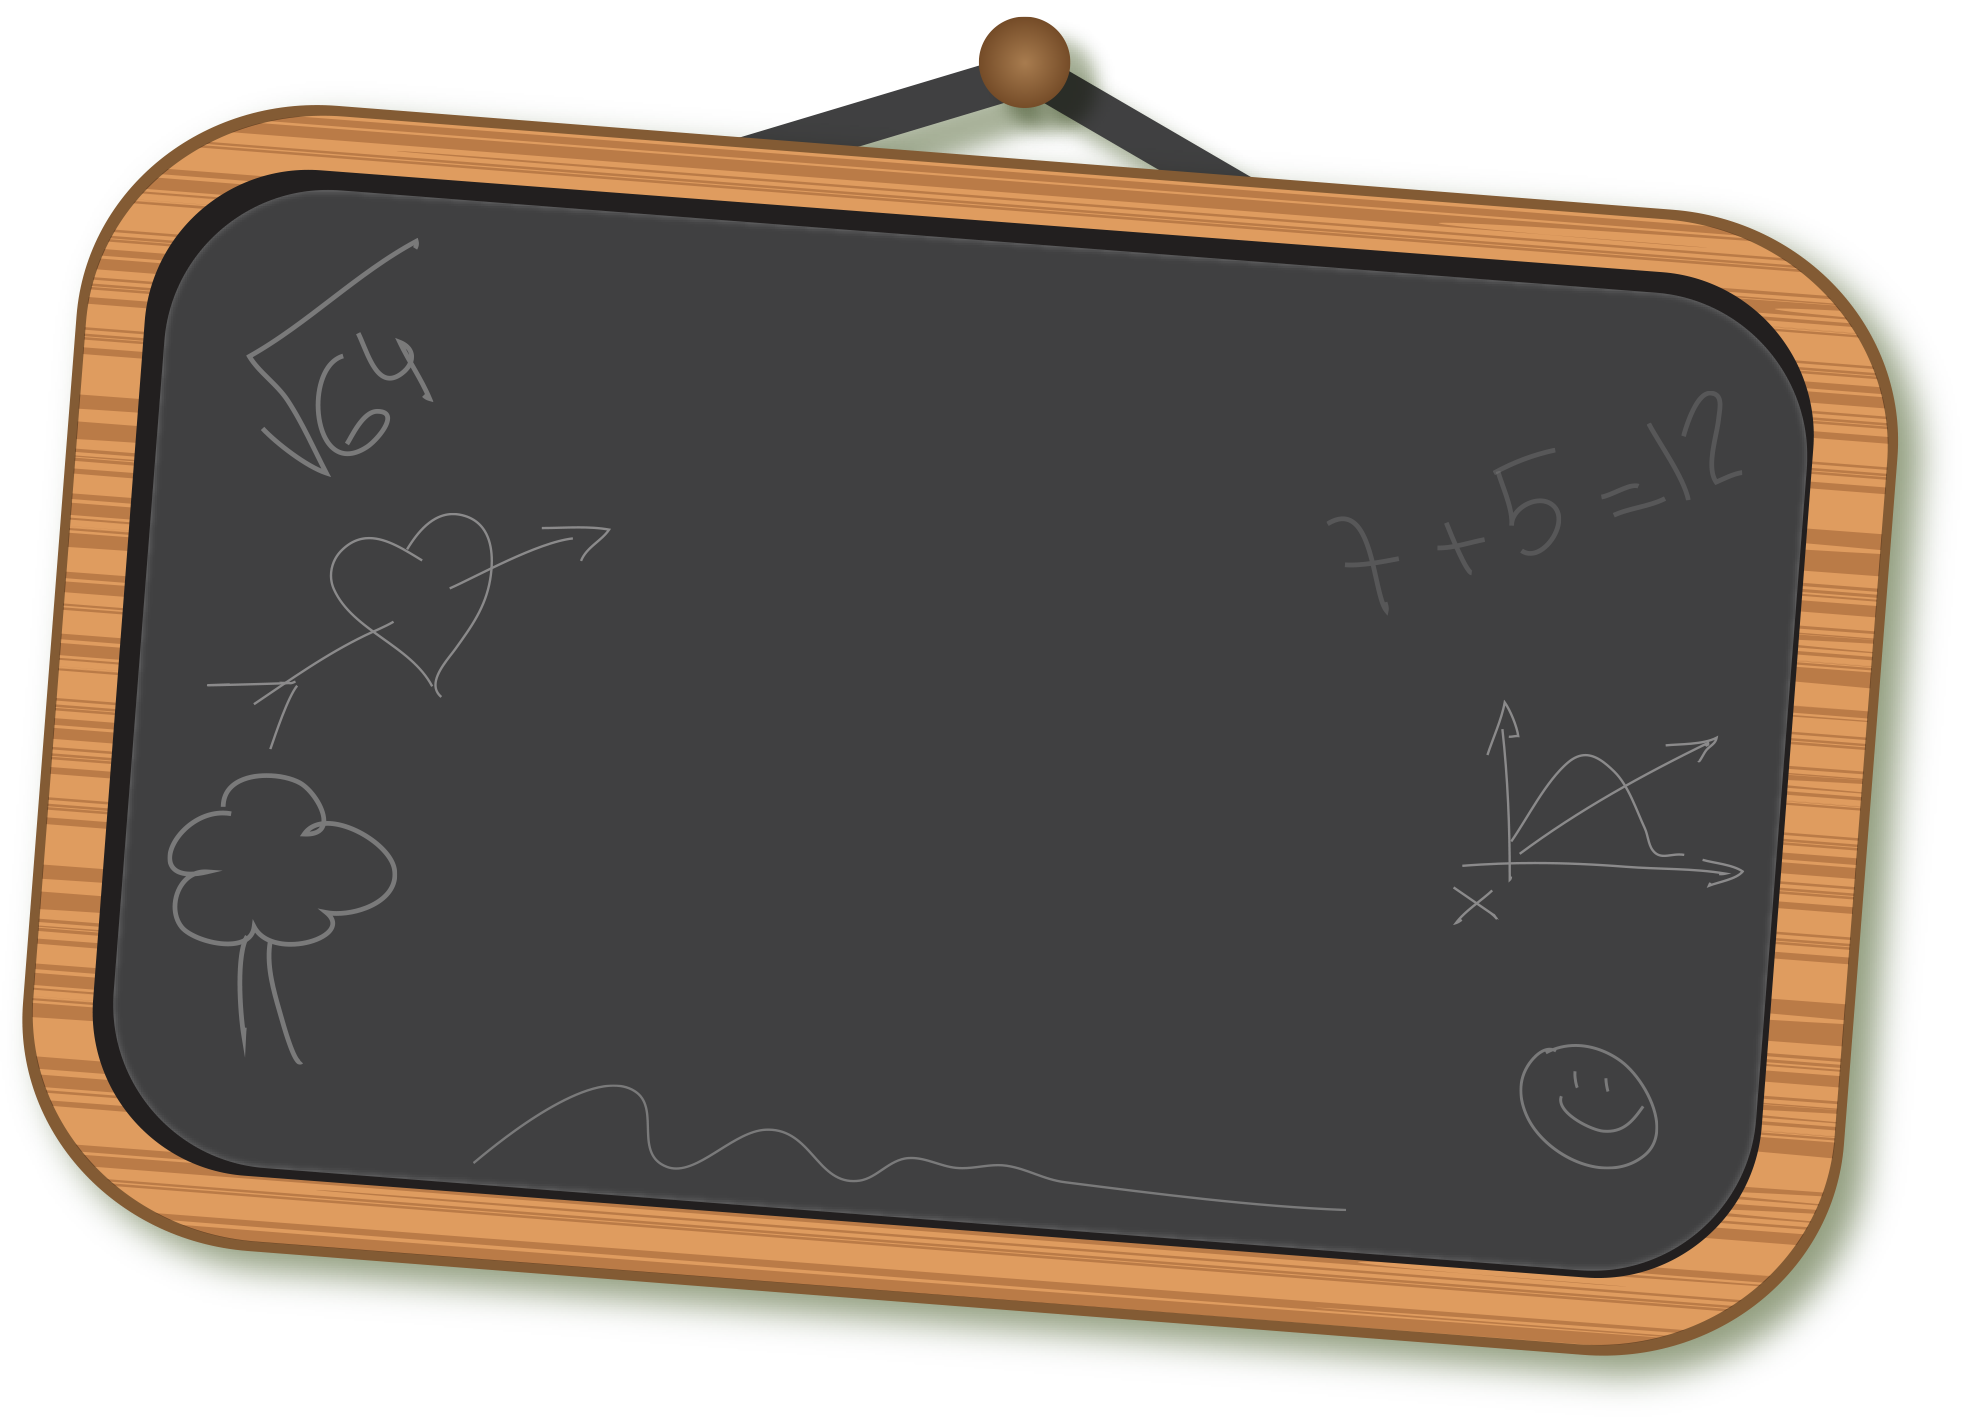 √64
7+5=12
x